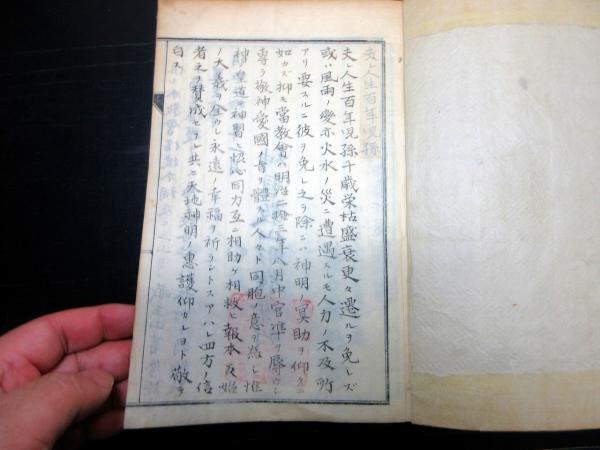 夫レ人生百年児孫千歳栄枯盛衰更々遷ルヲ免レズ
或ハ風雨ノ変亦火水ノ災ニ遭遇スルモ人力ノ不及所
アリ要スルニ彼ヲ免レ之ヲ除ニハ神明ノ冥助ヲ仰クニ
如カズ抑モ當教會ハ明治二拾三年八月中官準ヲ辱ウシ
専ラ敬神愛國ノ旨ヲ體スル人々ト同胞ノ意ヲ為シ惟
神皇道ヲ神習ヒ協心同力互ニ相助ケ相救ヒ報本反始
ノ大義ヲ全ウシ永遠ノ幸福ヲ祈ラントスアハレ四方ノ信
者之ヲ賛成セラレ共ニ天地神明ノ惠護仰カレヨト敬テ
白ス